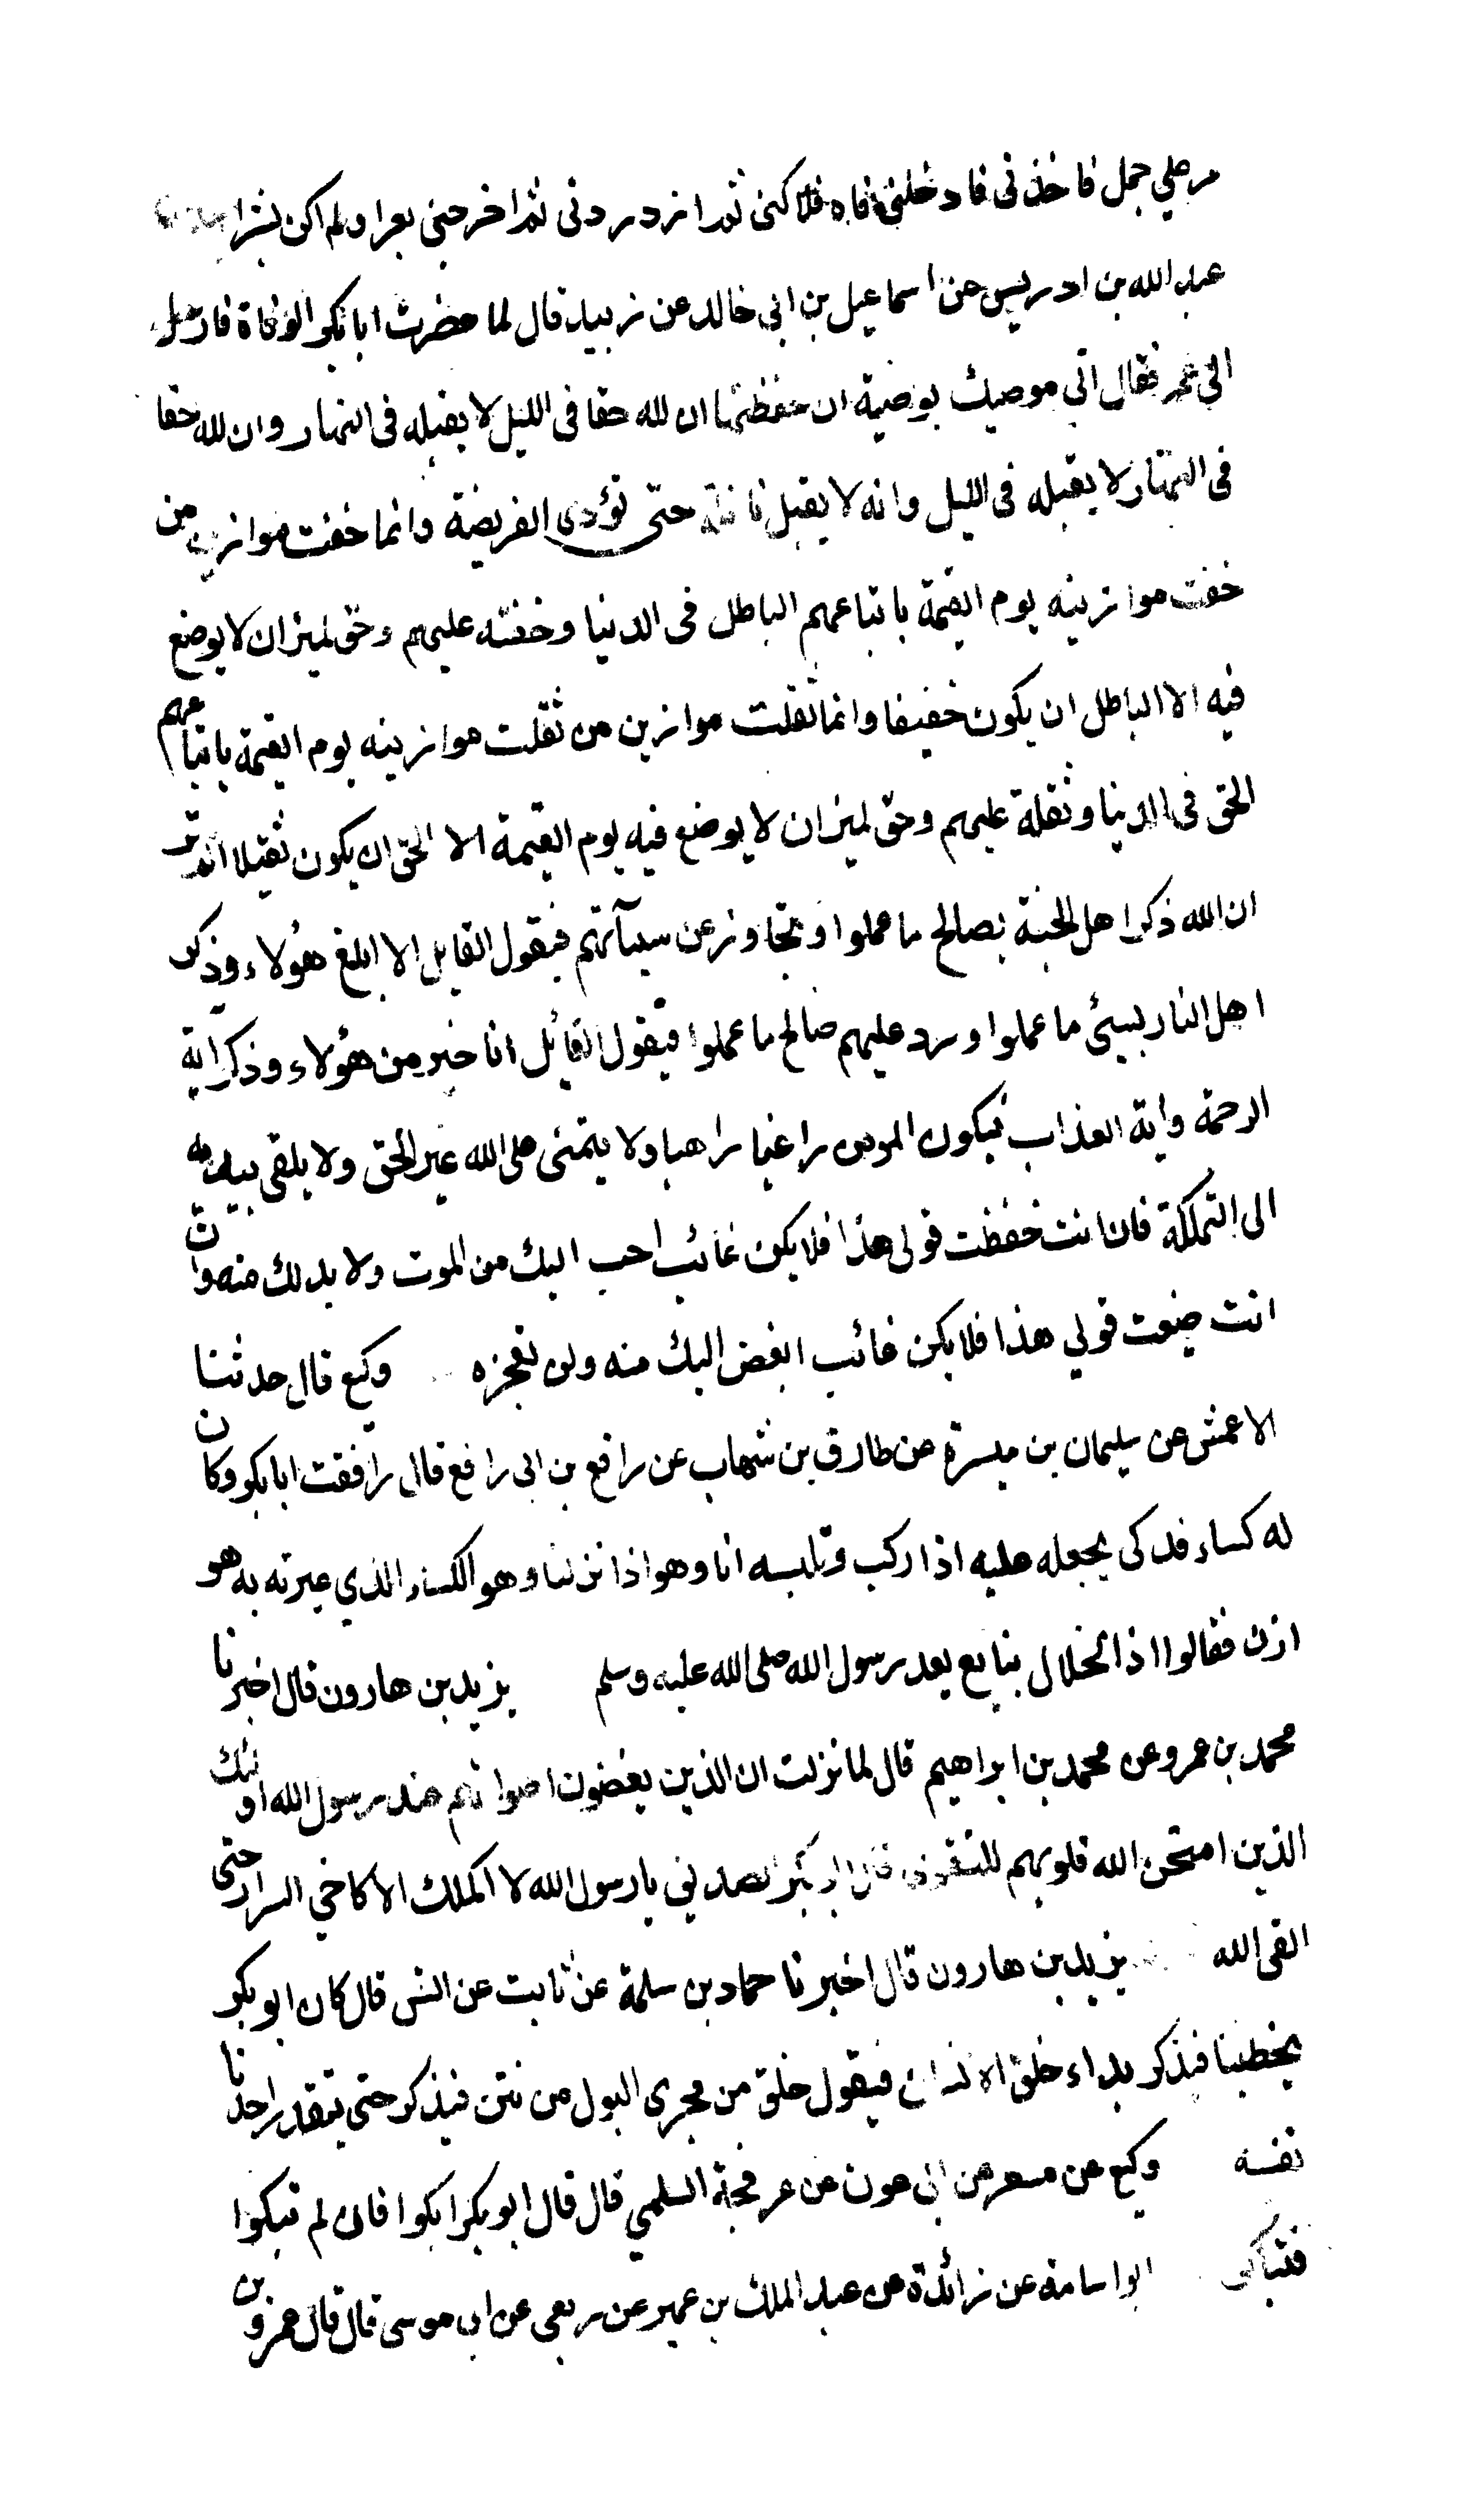 مر علي جمل فاخذني فادخلني فاه فلاكني ثم ازدردني ثم اخرجني بعرا ولم اكن بشرا
عبد الله بن ادريس عن اسماعيل بن ابي خالد عن زبيد قال لما حضرت ابا بكر الوفاة فارسل
الي عمر فقال اني موصيك بوصية ان حفظتها ان لله حقا في الليل لا يقبله في النهار وان لله حقا
في النهار لا يقبله في الليل وانه لا يقبل نافلة حتى تؤدى الفريضة وانما خفت موازين من
خفت موازينه يوم القيمة باتباعهم الباطل في الدنيا وخفته عليهم وحق لميزان لا يوضع
فيه الا الباطل ان يكون خفيفا وانما ثقلت موازين من ثقلت موازينه يوم القيمة باتباعهم
الحق في الدنيا وثقلة عليهم وحق لميزان لا يوضع فيه يوم القيمة الا الحق ان يكون ثقيلا الم تر
ان الله ذكر اهل الجنة بصالح ما عملوا وتجاوز عن سيآتهم فيقول القايل الا ابلغ هؤلاء وذكر
اهل النار بسيئ ما عملوا ورد عليهم صالح ما عملوا فيقول القائل انا خير من هؤلاء وذكر اية
الرحمة واية العذاب فيكون المومن راغبا راهبا ولا يتمنى على الله غير الحق ولا يلقي بيديه
الى التهلكة فان انت حفظت قولي هذا فلا يكن غائب احب اليك من الموت ولا بد لك منه وان
انت ضيعت قولي هذا فلا يكن غائب ابغض اليك منه ولن تعجزه وكيع قال حدثنا
الاعمش عن سليمان بن ميسرة عن طارق بن شهاب عن رافع بن ابي رافع قال رافقت ابا بكر وكان
له كساء فدكي يجعله عليه اذا ركب وتلبسه انا وهو اذا نزلنا وهو الكساء الذي عيرته به هو
ازن فقالوا اذا الخلال بنايع بعد رسول الله صلى الله عليه وسلم يزيد بن هارون قال اخبرنا
محمد بن عمرو عن محمد بن ابراهيم قال لما نزلت ان الذين يغضون اصواتهم عند رسول الله اولئك
الذين امتحن الله قلوبهم للتقوى قال ابو بكر الصديق يا رسول الله لا اكلمك الا كاخي السرار حتى
القى الله يزيد بن هارون قال اخبرنا حماد بن سلمة عن ثابت عن انس قال كان ابو بكر
يخطبنا فيذكر بداء خلق الانسان فيقول خلق من مجرى البول من نتن فيذكر حتى يتقذر احدنا
نفسه وكيع عن مسعر عن ابي عون عن عرفجة السلمي قال قال ابو بكر ابكوا فان لم تبكوا
فتباكوا ابو اسامة عن زائدة عن عبد الملك بن عمير عن ربعي عن ابي موسى قال قال عمرو بن